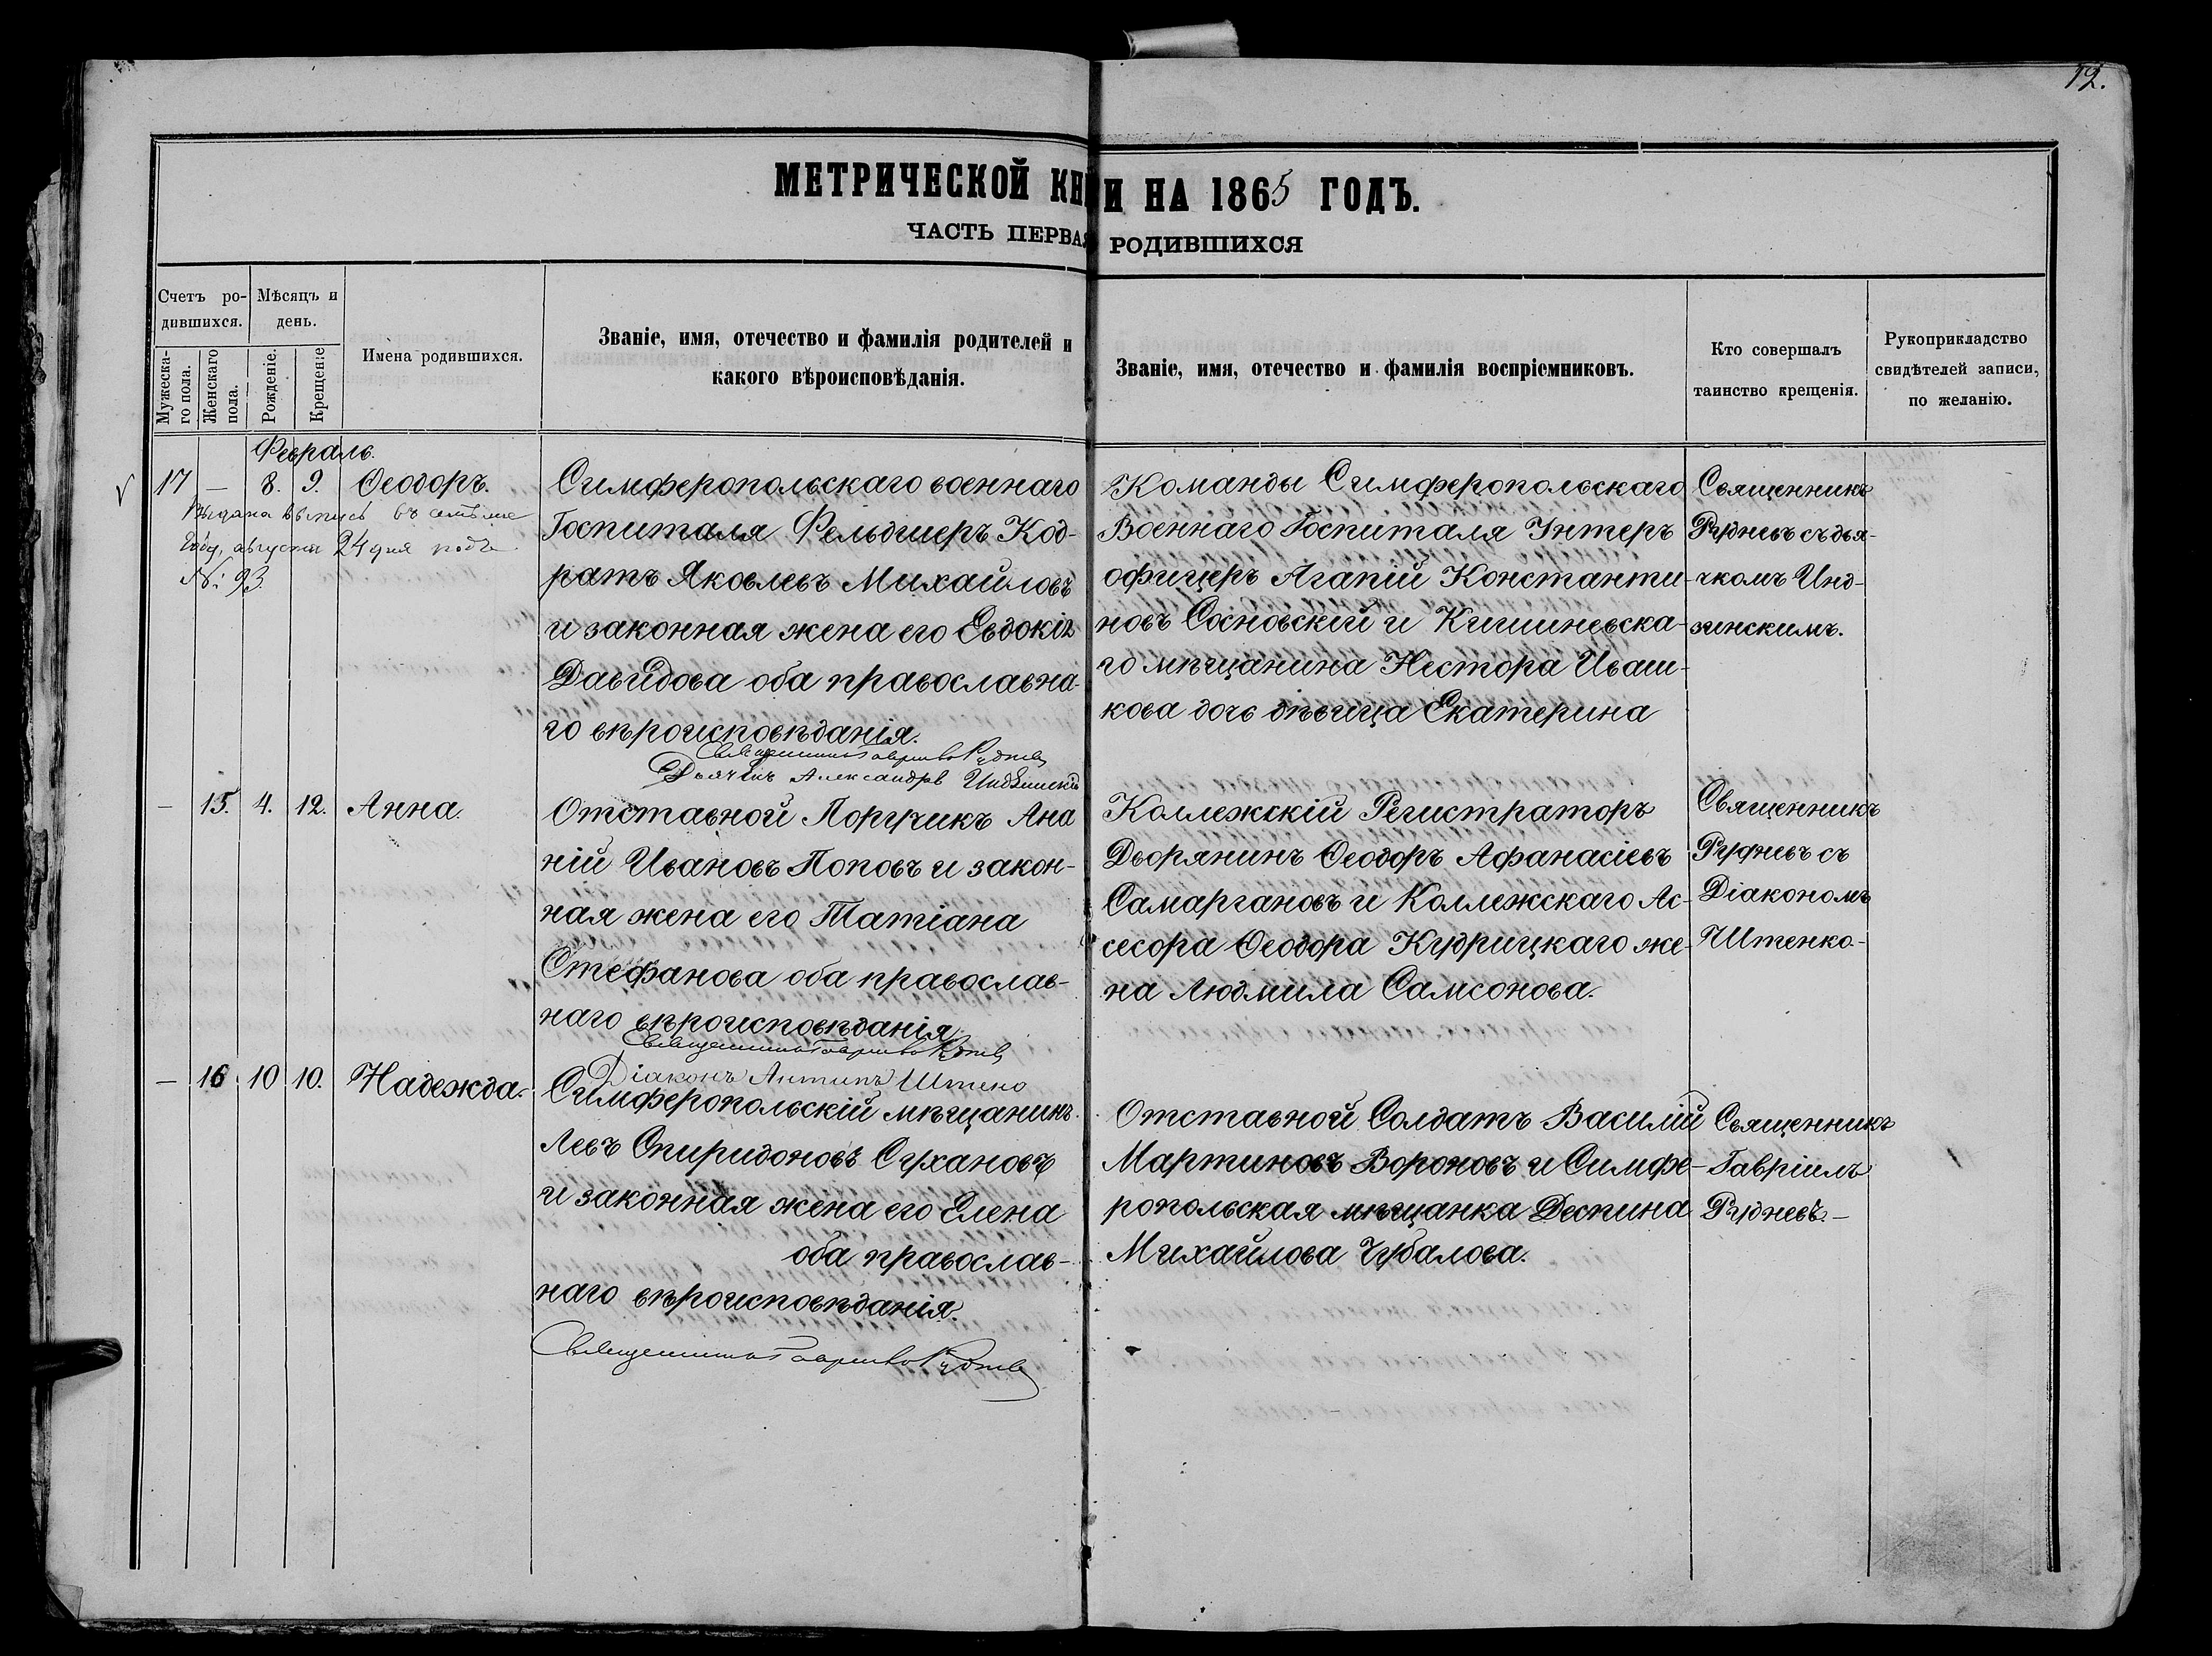 12.
МЕТРИЧЕСКОЙ КНИ И НА 1865 ГОДЪ.
ЧАСТЬ ПЕРВАЯ РОДИВШИХСЯ
Счетъ ро-
дившихся.
Мужеска-
го пола.
Женскаго
пола.
Мѣсяцъ и
день.
Рожденіе.
Крещеніе
Имена родившихся.
Званіе, имя, отечество и фамилія родителей и
какого вѣроисповѣданія.
Званіе, имя, отечество и фамилія воспріемниковъ.
Кто совершалъ
таинство крещенія.
Рукоприкладство
свидѣтелей записи,
по желанію.
Февраль.
17 — 8. 9. Ѳеодоръ.
Выдана выпись въ
году, августа 24 дня подъ
№: 93
Симферопольскаго военнаго
Госпиталя Фельдшеръ Код-
ратъ Яковлевъ Михайловъ
и законная жена его Евдокія
Давидова оба православна-
го вѣроисповѣданія.
Священникъ Гавріилъ Рудневъ
Дьячекъ Александръ Индзинскій
Команды Симферопольскаго
Военнаго Госпиталя Унтеръ
офицеръ Агапій Константи-
новъ Сосновскій и Кишиневска-
го мѣщанина Нестора Иваш-
кова дочь дѣвица Екатерина
Священникъ
Рудневъ съ дья-
чкомъ Инд-
зинскимъ.
— 15. 4. 12. Анна.
Отставной Поручикъ Ана
ній Ивановъ Поповъ и закон-
ная жена его Татіана
Стефанова оба православ-
наго вѣроисповѣданія.
Священникъ Гавріилъ Рудневъ
Діаконъ Антипъ Штенко
Коллежскій Регистраторъ
Дворянинъ Ѳеодоръ Афанасіевъ
Самаргановъ и Коллежскаго Ас-
сесора Ѳеодора Кудрицкаго же-
на Людмила Самсонова.
Священникъ
Рудневъ съ
Діакономъ
Штенко.-
— 16 10 10. Надежда.
Симферопольскій мѣщанинъ
Левъ Спиридоновъ Сухановъ
и законная жена его Елена
оба православ-
наго вѣроисповѣданія.
Священникъ Гавріилъ Рудневъ
Отставной Солдатъ Василій
Мартиновъ Вороновъ и Симфе-
ропольская мѣщанка Деспина
Михайлова Чубалова.
Священникъ
Гавріилъ
Рудневъ.—